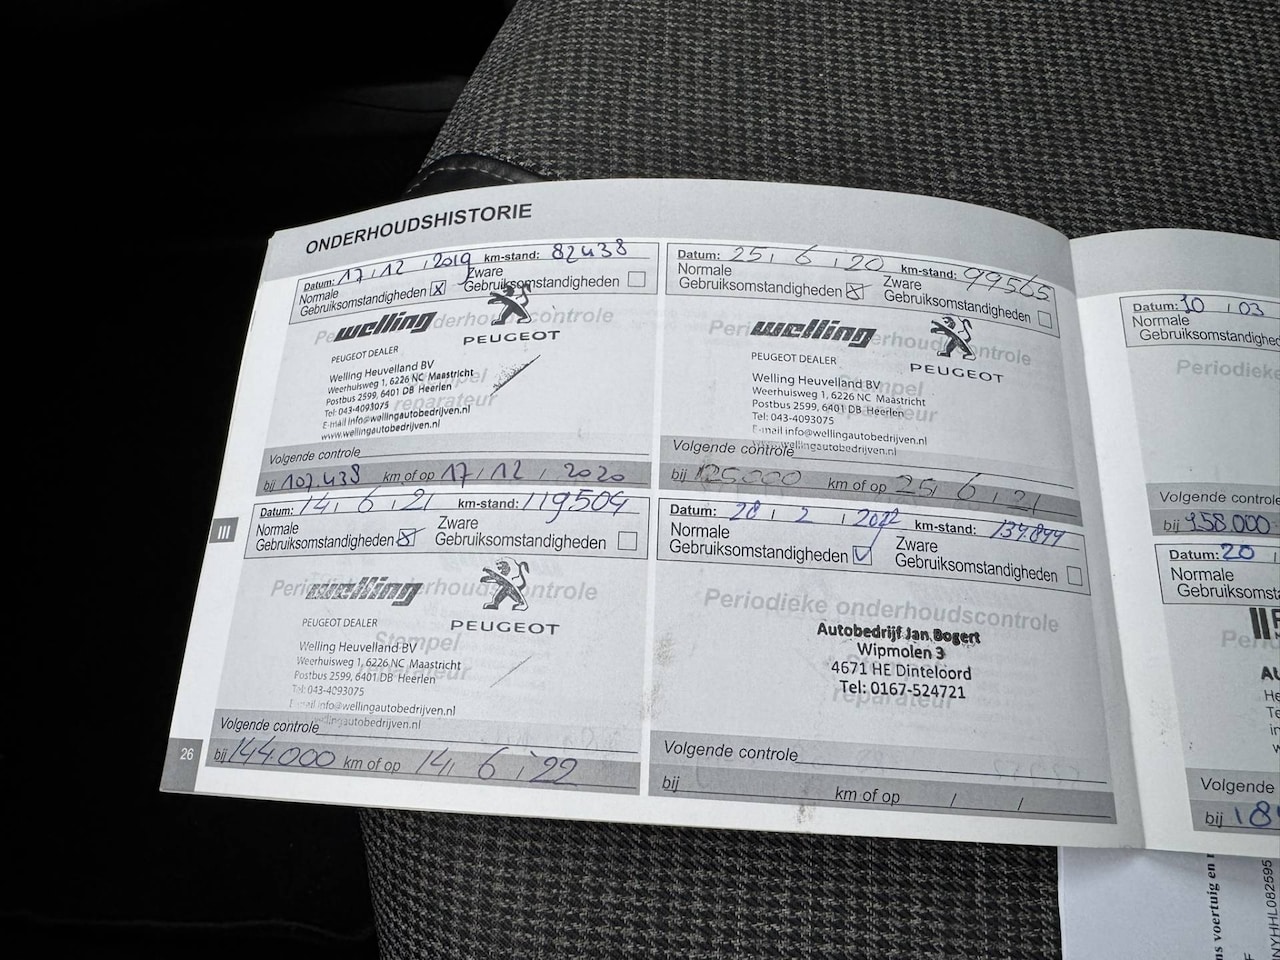 ONDERHOUDSHISTORIE
Datum: 17 / 12 / 2019 km-stand: 82438
Normale
Gebruiksomstandigheden X
Zware
Gebruiksomstandigheden
Periodieke onderhoudscontrole
welling
PEUGEOT
PEUGEOT DEALER
Welling Heuvelland BV
Weerhuisweg 1, 6226 NC Maastricht
Postbus 2599, 6401 DB Heerlen
Tel: 043-4093075
E-mail info@wellingautobedrijven.nl
www.wellingautobedrijven.nl
Stempel
reparateur
Volgende controle
bij 107.438 km of op 17 / 12 / 2020
Datum: 25 / 6 / 20 km-stand: 99565
Normale
Gebruiksomstandigheden X
Zware
Gebruiksomstandigheden
Periodieke onderhoudscontrole
welling
PEUGEOT
PEUGEOT DEALER
Welling Heuvelland BV
Weerhuisweg 1, 6226 NC Maastricht
Postbus 2599, 6401 DB Heerlen
Tel: 043-4093075
E-mail info@wellingautobedrijven.nl
www.wellingautobedrijven.nl
Stempel
reparateur
Volgende controle
bij 125.000 km of op 25 / 6 / 21
Datum: 14 / 6 / 21 km-stand: 119504
Normale
Gebruiksomstandigheden X
Zware
Gebruiksomstandigheden
Periodieke onderhoudscontrole
welling
PEUGEOT
PEUGEOT DEALER
Welling Heuvelland BV
Weerhuisweg 1, 6226 NC Maastricht
Postbus 2599, 6401 DB Heerlen
Tel: 043-4093075
E-mail info@wellingautobedrijven.nl
www.wellingautobedrijven.nl
Stempel
reparateur
Volgende controle
bij 144.000 km of op 14 / 6 / 22
Datum: 28 / 2 / 2022 km-stand: 134.899
Normale
Gebruiksomstandigheden
Zware
Gebruiksomstandigheden
Periodieke onderhoudscontrole
Autobedrijf Jan Bogert
Wipmolen 3
4671 HE Dinteloord
Tel: 0167-524721
reparateur
Volgende controle
bij km of op / /
III
26
Datum: 10 / 03
Normale
Gebruiksomstandighe
Periodieke
Volgende controle
bij 158.000
Datum: 20 /
Normale
Gebruiksomsta
Volgende
bij 18
ns voertuig en
NYHHL082595